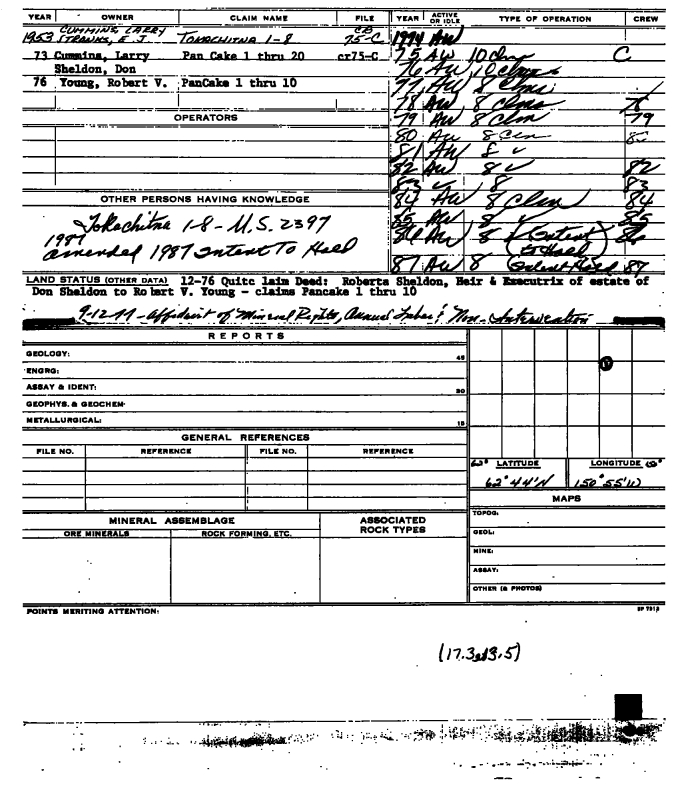 YEAR OWNER CLAIM NAME FILE YEAR ACTIVE OR IDLE TYPE OF OPERATION CREW
CUMMINS, LARRY
1953 E. J. TOKACHITNA 1-8 75-C
1974 AW
73 Cummins, Larry Pan Cake 1 thru 20 cr75-C
Sheldon, Don
76 Young, Robert V. PanCake 1 thru 10
75 AW 10 Clms C
76 AW 10 clms
77 AW 8 Clms
78 AW 8 clms
79 AW 8 Clm 79
80 AW 8
81 AW 8 ✓
82 AW 8 ✓ 82
83 ✓ 8 83
84 AW 8 Clm 84
85 AW 8 ✓ 85
86 AW 8 (Intent to Hold) 86
87 AW 8 Intent Hold 87
OPERATORS
OTHER PERSONS HAVING KNOWLEDGE
Tokachitna 1-8 - M.S. 2397
1987
amended 1987 Intent To Hold
LAND STATUS (OTHER DATA) 12-76 Quitc laim Deed: Roberta Sheldon, Heir & Executrix of estate of
Don Sheldon to Robert V. Young - claims Pancake 1 thru 10
9-12-77 - Affidavit of Mineral Rights, Annual Labor & Non-Intervention
REPORTS
GEOLOGY: 45
ENGRG:
ASSAY & IDENT: 30
GEOPHYS. & GEOCHEM:
METALLURGICAL: 15
GENERAL REFERENCES
FILE NO. REFERENCE FILE NO. REFERENCE
LATITUDE LONGITUDE
62° 44'N 150° 55'W
MAPS
TOPOG:
GEOL:
MINE:
ASSAY:
OTHER (& PHOTOS)
MINERAL ASSEMBLAGE ASSOCIATED ROCK TYPES
ORE MINERALS ROCK FORMING, ETC.
POINTS MERITING ATTENTION: